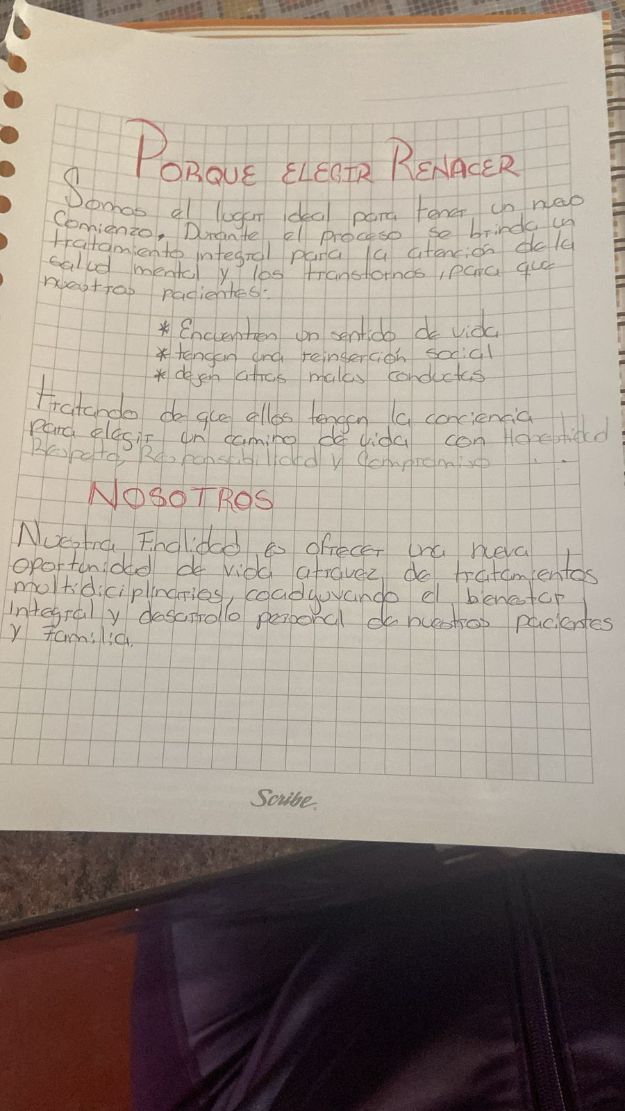 PORQUE ELEGIR RENACER
Somos el lugar ideal para tener un nuevo
comienzo, Durante el proceso se brinda un
tratamiento integral para la atención de la
salud mental y los transtornos, para que
nuestros pacientes:
* Encuentren un sentido de vida
* tengan una reinserción social
* dejen atras malas conductas
tratando de que ellos tengan la conciencia
para elegir un camino de vida con Honestidad
Respeto, Responsabilidad y Compromiso
NOSOTROS
Nuestra Finalidad es ofrecer una nueva
oportunidad de vida atravez de tratamientos
multidiciplinarios, coadyuvando el bienestar
integral y desarrollo personal de nuestros pacientes
y familia.
Scribe